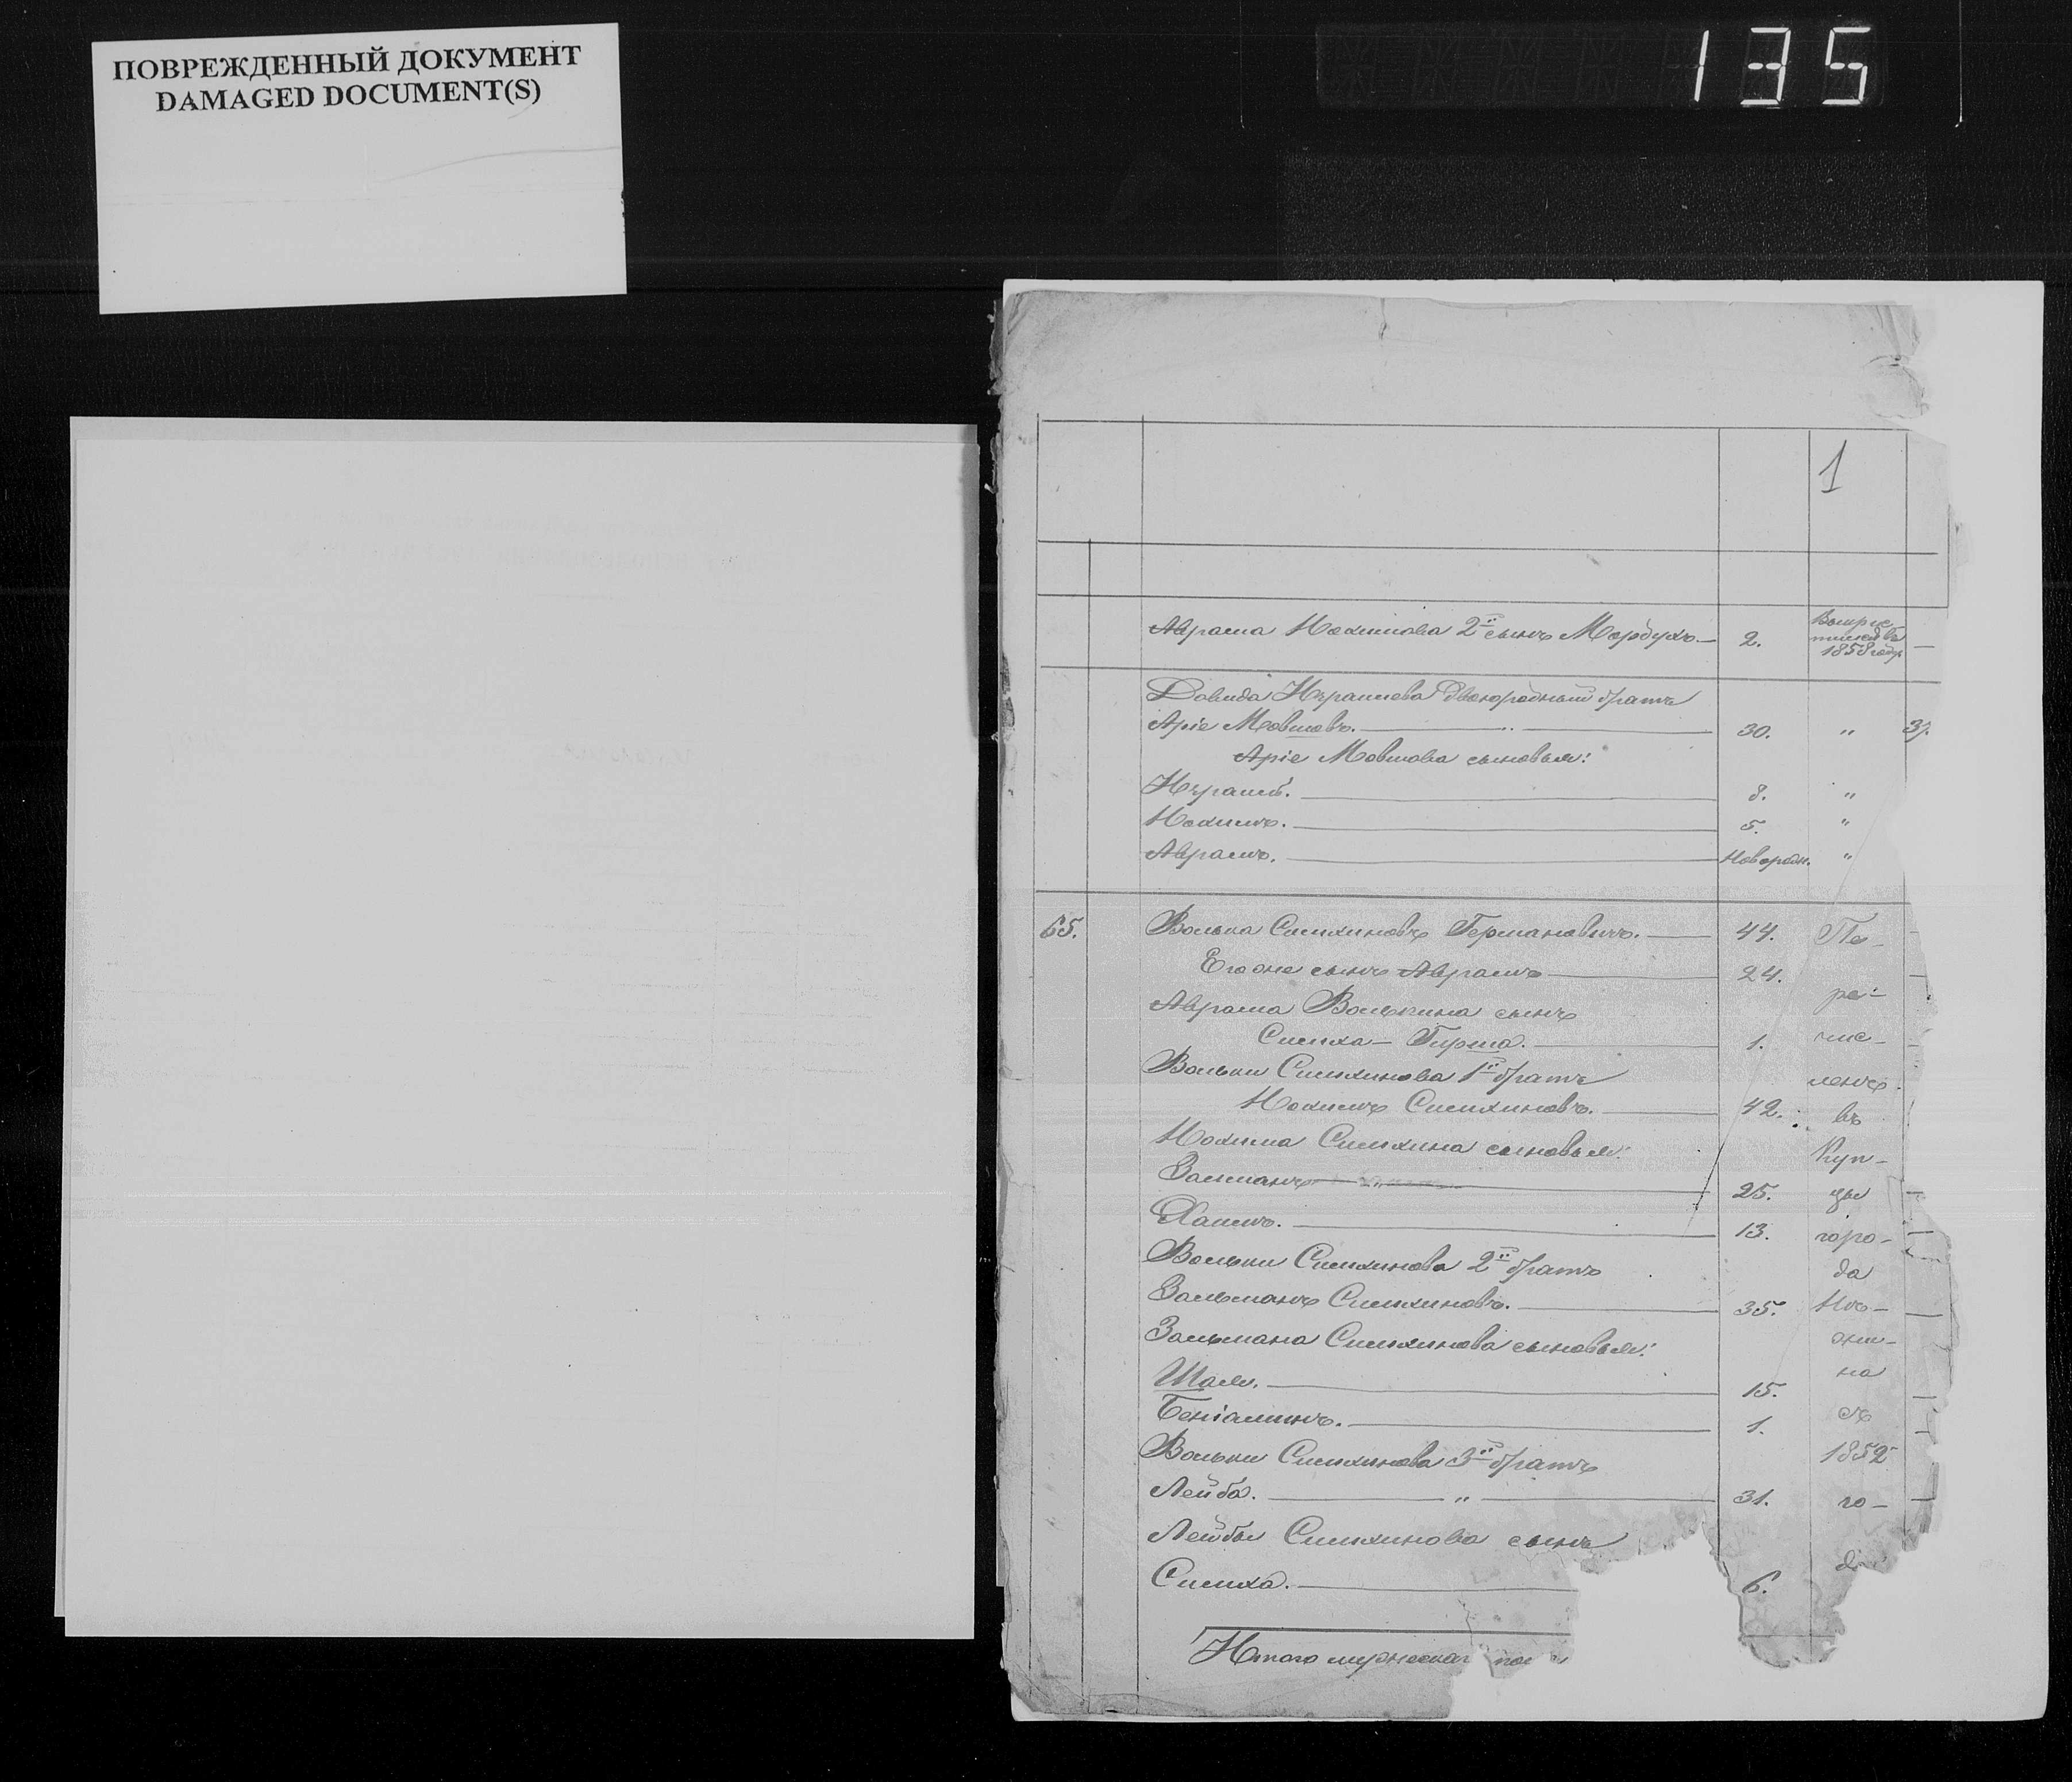 ПОВРЕЖДЕННЫЙ ДОКУМЕНТ
DAMAGED DOCUMENT(S)
135
1
Аврама Нохимова 2й сынъ Мордухъ.— 2. 1858 году —
Довида Израилева двоюродный братъ
Аріе Мовшовъ. — " — 30. " 37.
Аріе Мовшова сыновья:
Израиль. — 8. "
Нохимъ. — 5. "
Аврамъ. — Новорожд. "
65. Волька Симхиновъ Германовичъ. — 44. Пе-
Его же сынъ Аврамъ — 24.
Аврама Волькина сынъ ре-
Симха-Гирша. — 1. чис-
Вольки Симхинова 1й братъ ленъ
Нохимъ Симхиновъ. — 42. въ
Нохима Симхина сыновья: Куп-
Залманъ — " — 25. цы
Хаимъ. — 13. горо-
Вольки Симхинова 2й братъ да
Зальманъ Симхиновъ. — 35. Нѣ-
Зальмана Симхинова сыновья: жи-
на
Шая. — 15.
Беніаминъ. — 1. съ
Вольки Симхинова 3й братъ 1852
Лейба. — " — 31. го-
Лейбы Симхинова сынъ
Симха. — 6.
Итого мужескаго